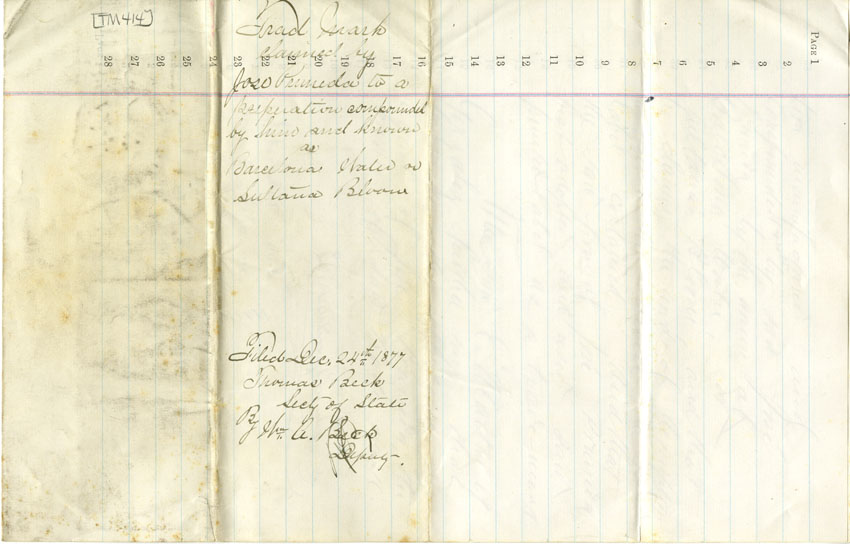 [TM414]
Trad Mark
claimed by
Jose Pinneda to a
Preperation compounded
by him and known
as
Barcelona Water or
Sultana Bloom
Filed Dec. 24th 1877
Thomas Beck
Secty of State
By Wm A. Beck
Deputy.
PAGE 1
2
3
4
5
6
7
8
9
10
11
12
13
14
15
16
17
18
19
20
21
22
23
24
25
26
27
28